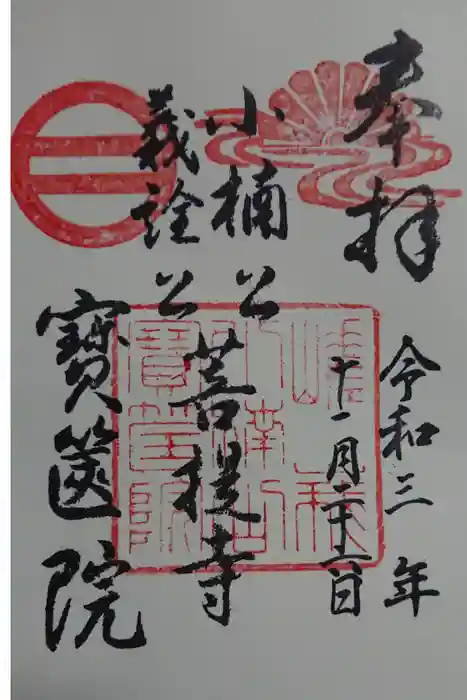 奉拝
令和三年
十一月二十六日
小楠公
義詮公
菩提寺
寶篋院